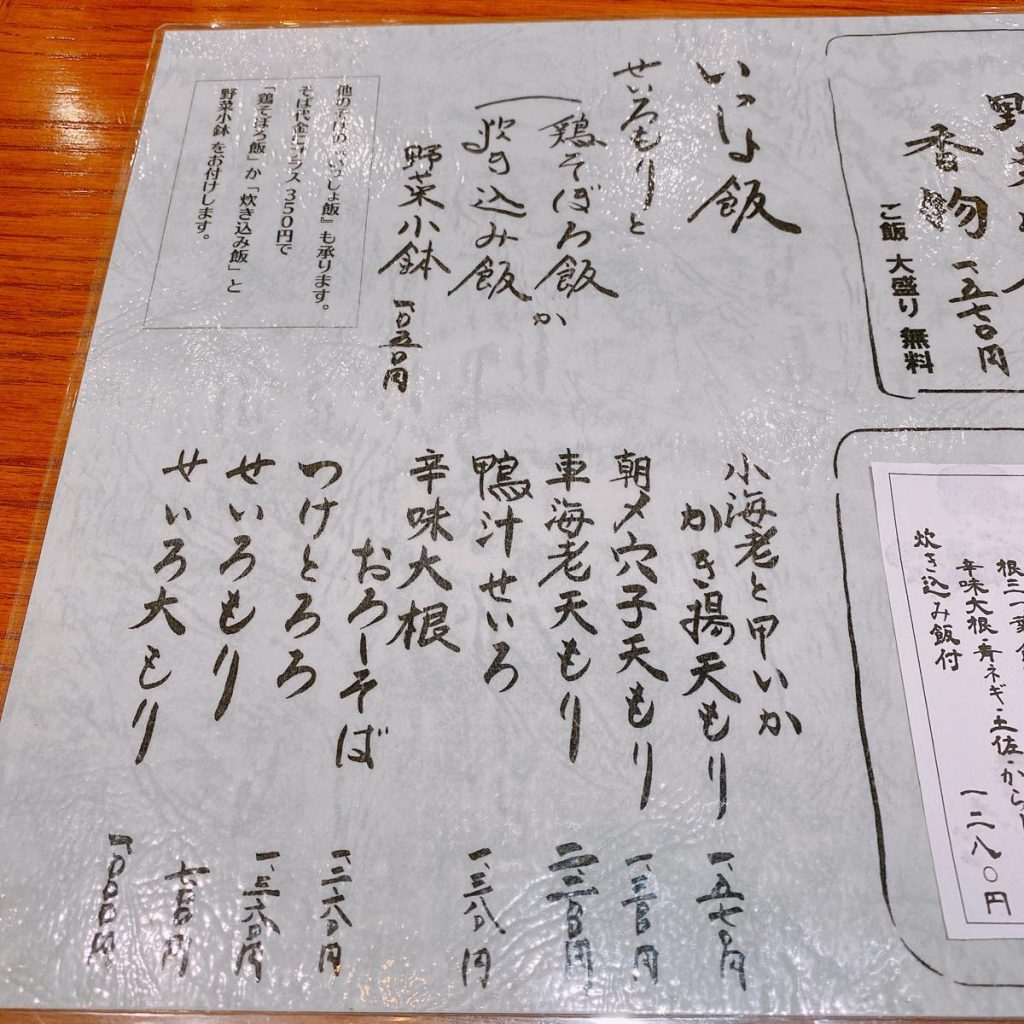 香物
一、五七〇円
ご飯 大盛り 無料
辛味大根・青ネギ・土佐・から
炊き込み飯付
一二八〇円
いっしょ飯
せいろもりと
鶏そぼろ飯
炊き込み飯か
野菜小鉢
一、〇五〇円
『いっしょ飯』も承ります。
そば代金プラス350円で
「鶏そぼろ飯」か「炊き込み飯」と
野菜小鉢をお付けします。
小海老と甲いか
かき揚天もり 一、五七〇円
朝〆穴子天もり 一、三〇〇円
車海老天もり 二、三〇〇円
鴨汁せいろ 一、三八〇円
辛味大根
おろしそば 一、二六〇円
つけとろろ 一、三六〇円
せいろもり 七〇〇円
せいろ大もり 一、〇〇〇円